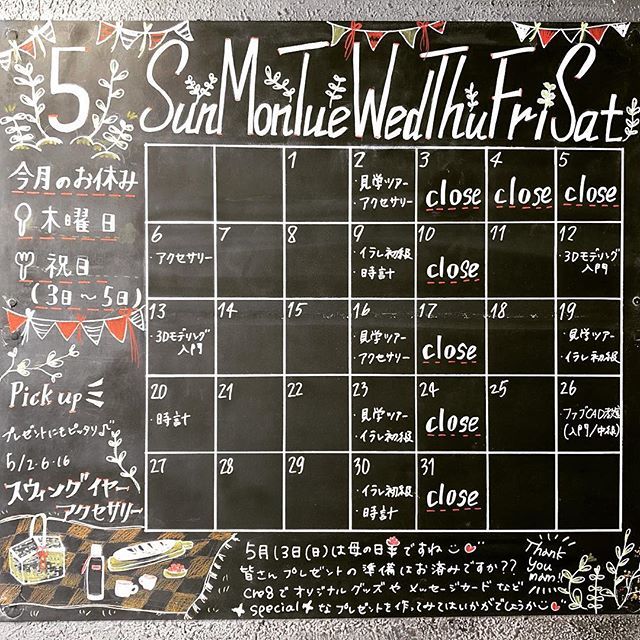 5
Sun Mon Tue Wed Thu Fri Sat
今月のお休み
木曜日
祝日
(3日〜5日)
Pick up
プレゼントにもピッタリ♪
5/2.6.16
スウィングイヤー
アクセサリー
1
2
・見学ツアー
・アクセサリー
3
close
4
close
5
close
6
・アクセサリー
7
8
9
・イラレ初級
・時計
10
close
11
12
・3Dモデリング
入門
13
・3Dモデリング
入門
14
15
16
・見学ツアー
・アクセサリー
17
close
18
19
・見学ツアー
・イラレ初級
20
・時計
21
22
23
・見学ツアー
・イラレ初級
24
close
25
26
・ファブCAD
(入門/中級)
27
28
29
30
・イラレ初級
・時計
31
close
5月13日(日)は母の日ですね
皆さん プレゼントの準備はお済みですか??
Cre8でオリジナルグッズやメッセージカードなど
specialなプレゼントを作ってみてはいかがでしょうか
Thank
you
mom!